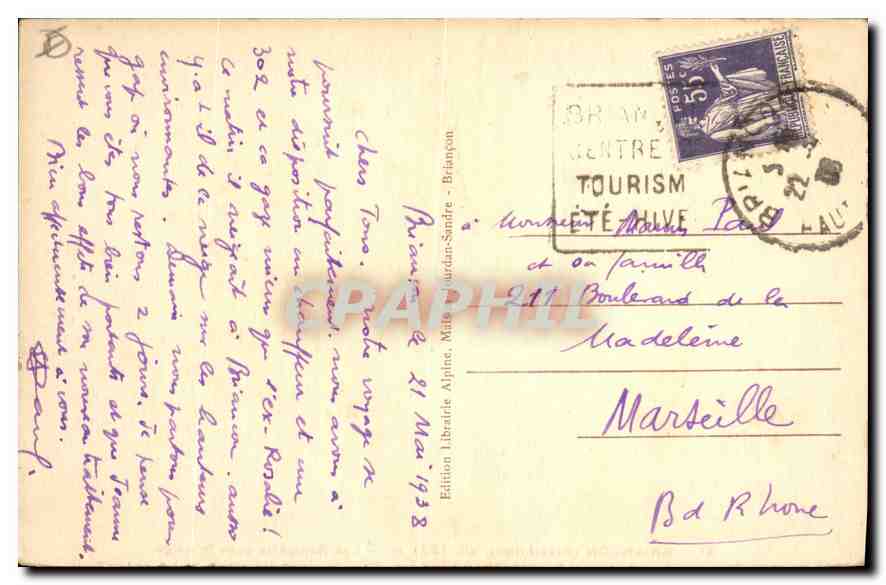 Briançon le 21 Mai 1938
Chers Tous. notre voyage se
poursuit parfaitement. nous avons à
notre disposition un chauffeur et une
302 et ça gaze mieux que l'ex-Rosalie!
ce matin il neigeait à Briançon. aussi
y-a-t-il de la neige sur les hauteurs
environnantes. Demain nous partons pour
gap où nous restons 2 jours. Je pense
que vous êtes tous bien portants et que Jeanne
ressent les bons effets de son nouveau traitement.
Bien affectueusement à vous.
Edition Librairie Alpine, Jourdan-Sandre - Briançon
POSTES
55c
REPUBLIQUE FRANÇAISE
BRIAN
CENTRE
TOURISM
ÉTÉ HIVE
22
à Monsieur Paul
et sa famille
211 Boulevard de la
Madeleine
Marseille
Bd Rhone
CPAPHIL